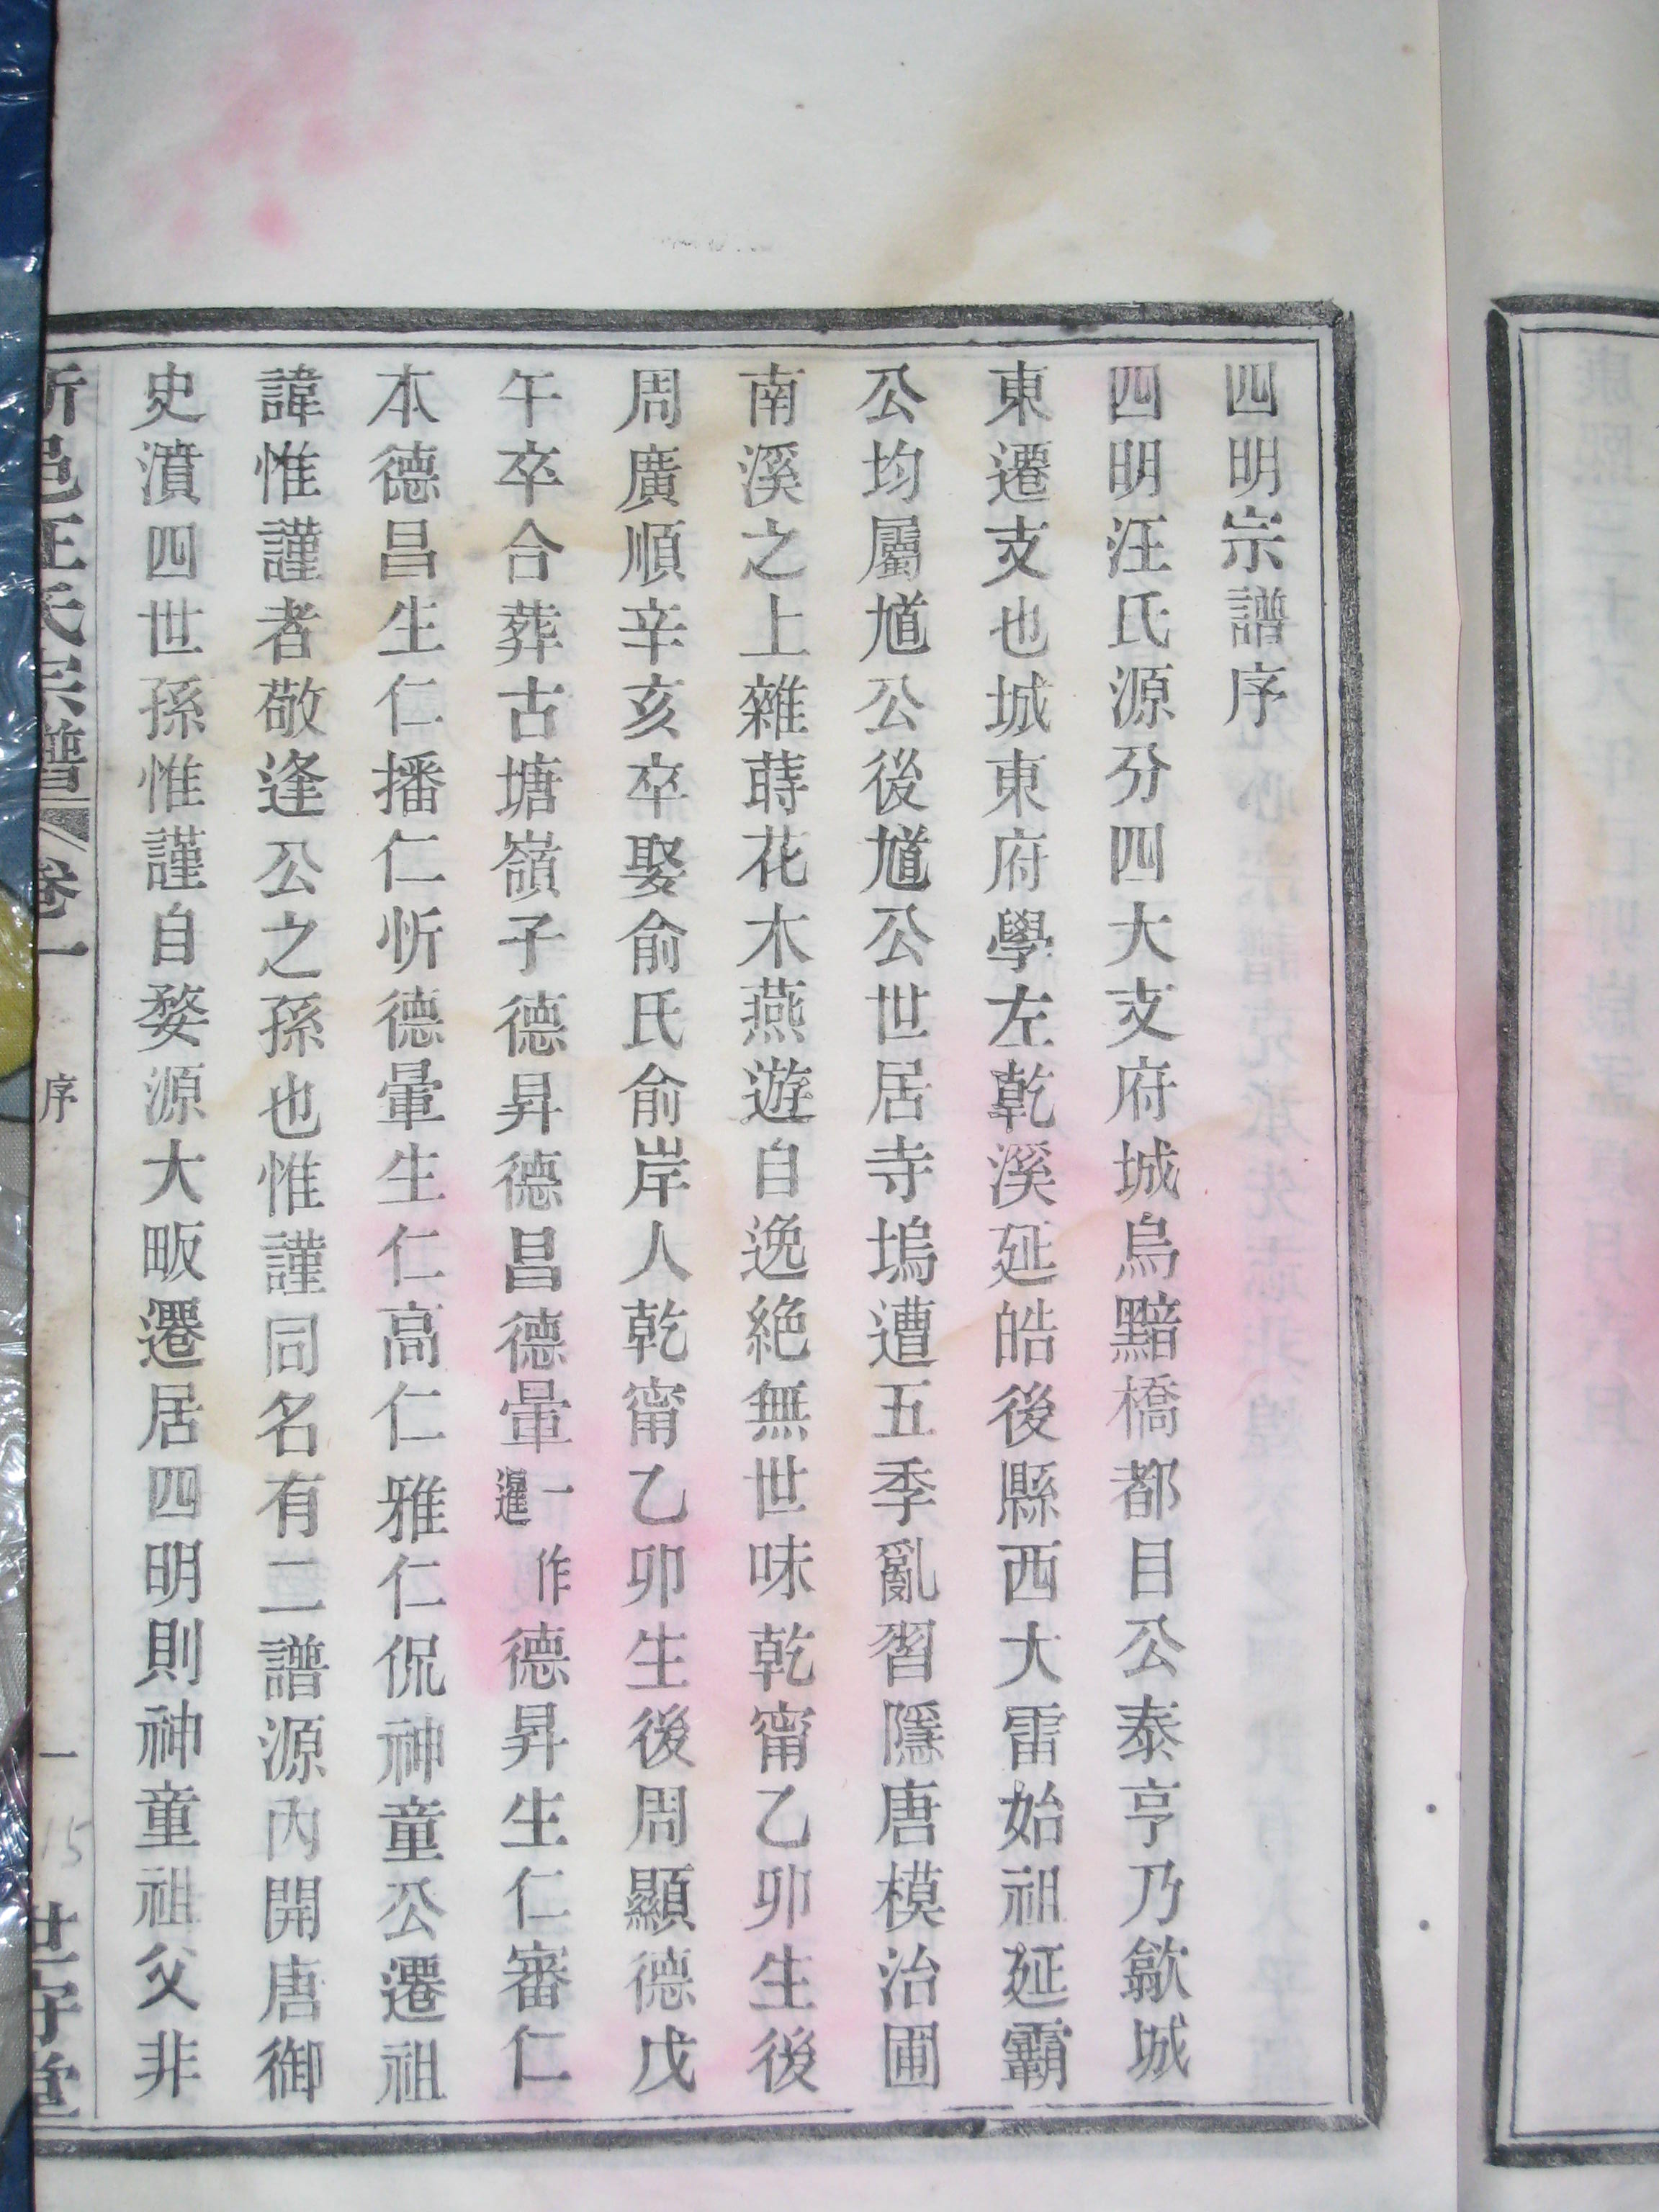 四明宗譜序
四明汪氏源分四大支府城烏黯橋都目公泰亨乃歙城
東遷支也城東府學左乾溪延皓後縣西大雷始祖延霸
公均屬尵公後尵公世居寺塢遭五季亂習隱唐模治圃
南溪之上雜蒔花木燕遊自逸絶無世味乾甯乙卯生後
周廣順辛亥卒娶俞氏俞岸人乾甯乙卯生後周顯德戊
午卒合葬古塘嶺子德昇德昌德暈一作暹德昇生仁審仁
本德昌生仁播仁忻德暈生仁高仁雅仁侃神童公遷祖
諱惟謹者敬逢公之孫也惟謹同名有二譜源內開唐御
史濆四世孫惟謹自婺源大畈遷居四明則神童祖父非
邑汪氏宗譜 卷一 序 一 15